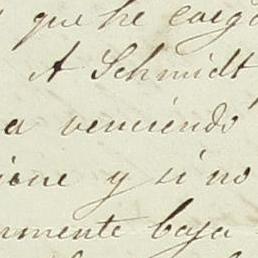 que he carg
A Schmidt
a venciendo
ione y si no
rmente baja